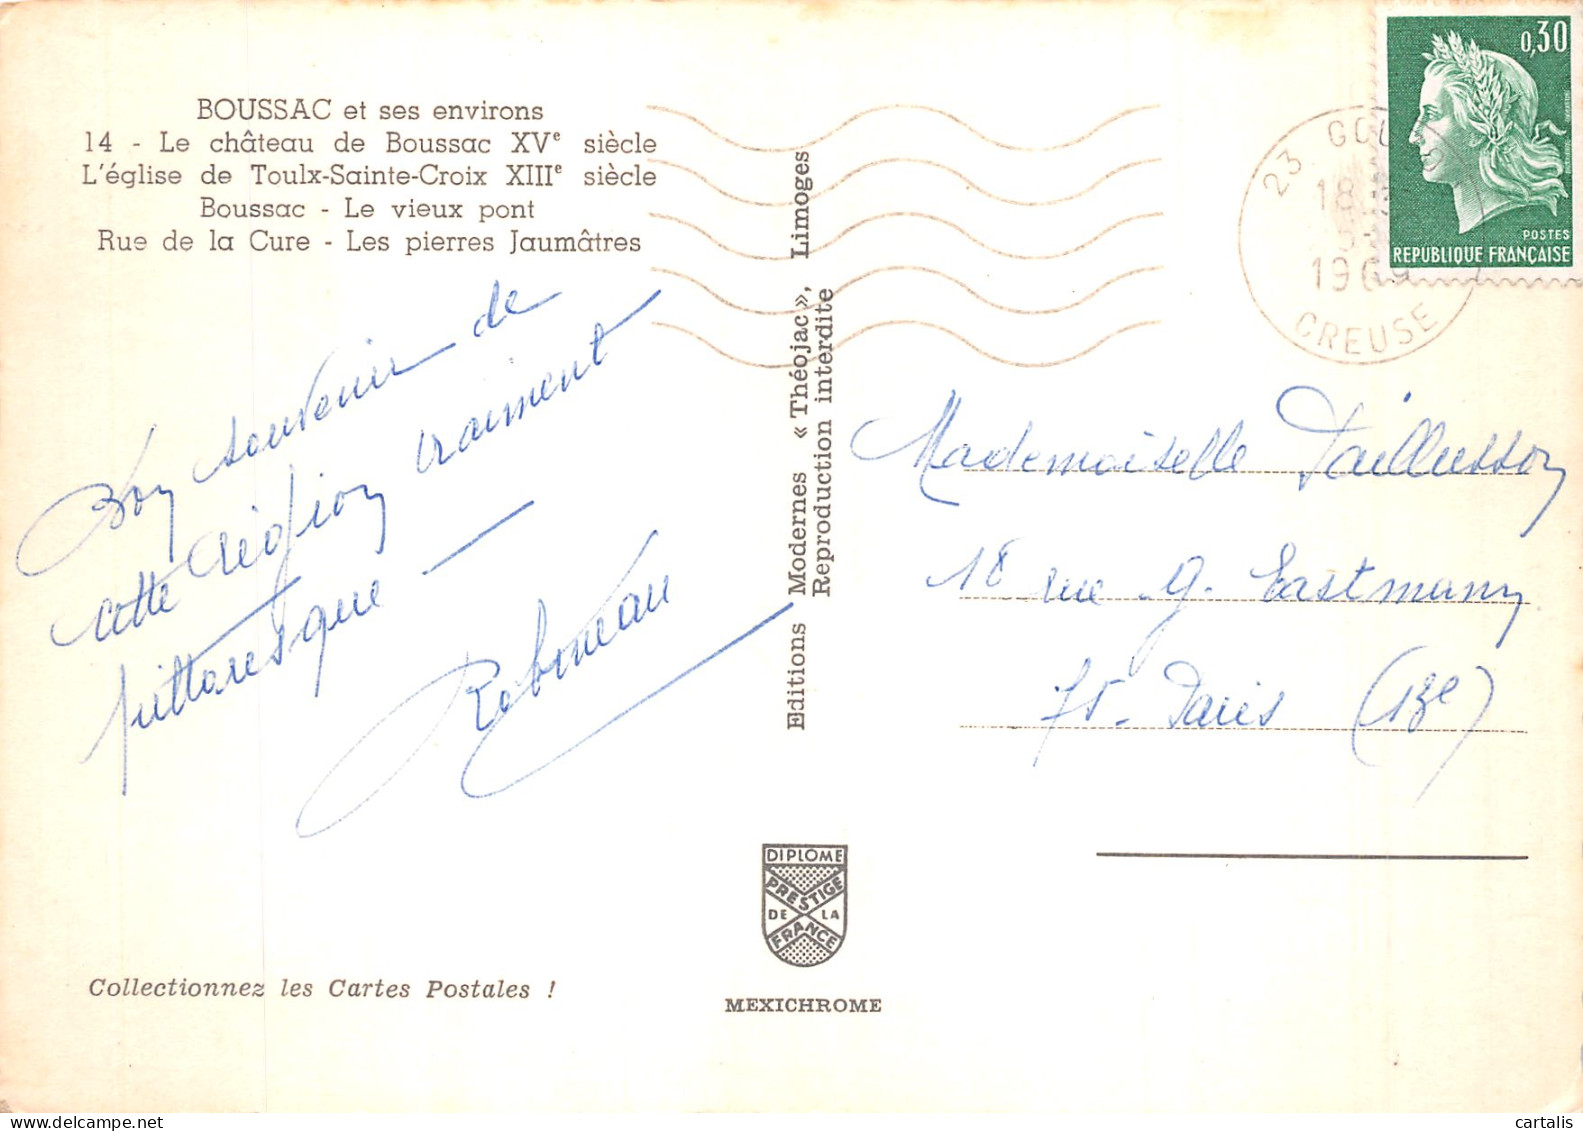 BOUSSAC et ses environs
14 - Le château de Boussac XVe siècle
L'église de Toulx-Sainte-Croix XIIIe siècle
Boussac - Le vieux pont
Rue de la Cure - Les pierres Jaumâtres
Bon souvenir de
cette région vraiment
pittoresque -
Robineau
Editions Modernes « Théojac », Limoges
Reproduction interdite
0,30
POSTES
REPUBLIQUE FRANÇAISE
23
18
1969
CREUSE
Mademoiselle Taillusson
18 rue G. Eastmann
75 - Paris (13e)
DIPLOME
PRESTIGE
DE LA
FRANCE
MEXICHROME
Collectionnez les Cartes Postales !
cartalis